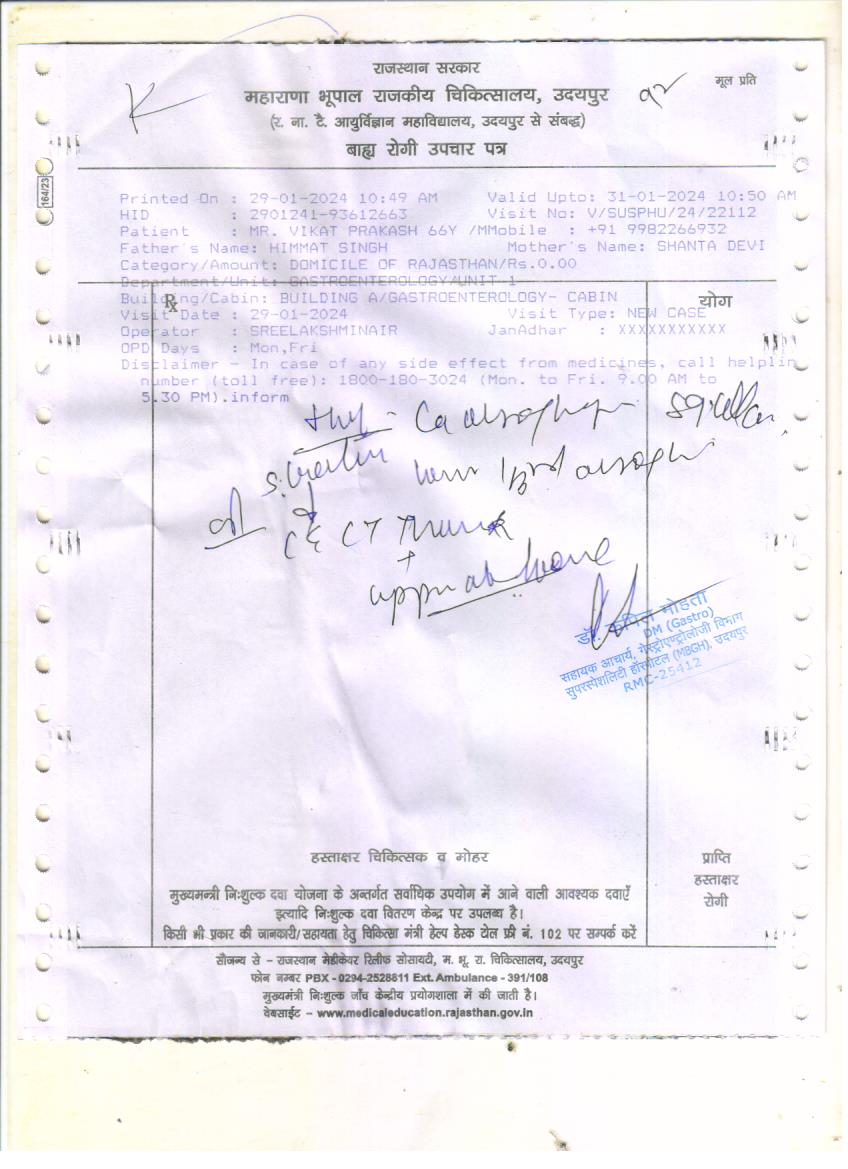 राजस्थान सरकार
मूल प्रति
महाराणा भूपाल राजकीय चिकित्सालय, उदयपुर
(र. ना. टै. आयुर्विज्ञान महाविद्यालय, उदयपुर से संबद्ध)
बाह्य रोगी उपचार पत्र
164/23
Printed On : 29-01-2024 10:49 AM Valid Upto: 31-01-2024 10:50 AM
HID : 2901241-93612663 Visit No: V/SUSPHU/24/22112
Patient : MR. VIKAT PRAKASH 66Y /MMobile : +91 9982266932
Father's Name: HIMMAT SINGH Mother's Name: SHANTA DEVI
Category/Amount: DOMICILE OF RAJASTHAN/Rs.0.00
Department/Unit: GASTROENTEROLOGY/UNIT-1
Building/Cabin: BUILDING A/GASTROENTEROLOGY- CABIN
योग
Visit Date : 29-01-2024 Visit Type: NEW CASE
Operator : SREELAKSHMINAIR JanAdhar : XXXXXXXXXXX
OPD Days : Mon,Fri
Disclaimer - In case of any side effect from medicines, call helplin
number (toll free): 1800-180-3024 (Mon. to Fri. 9.00 AM to
5.30 PM).inform
Ca
CT
डॉ. कपिल मोहता
DM (Gastro)
सहायक आचार्य, गेस्ट्रोएण्ट्रोलोजी विभाग
सुपरस्पेशलिटी हॉस्पीटल (MBGH), उदयपुर
RMC-25412
हस्ताक्षर चिकित्सक व मोहर
प्राप्ति
हस्ताक्षर
रोगी
मुख्यमन्त्री निःशुल्क दवा योजना के अन्तर्गत सर्वाधिक उपयोग में आने वाली आवश्यक दवाएँ
इत्यादि निःशुल्क दवा वितरण केन्द्र पर उपलब्ध है।
किसी भी प्रकार की जानकारी/सहायता हेतु चिकित्सा मंत्री हेल्प डेस्क टोल फ्री नं. 102 पर सम्पर्क करें
सौजन्य से - राजस्थान मेडीकेयर रिलीफ सोसायटी, म. भू. रा. चिकित्सालय, उदयपुर
फोन नम्बर PBX - 0294-2528811 Ext. Ambulance - 391/108
मुख्यमंत्री निःशुल्क जाँच केन्द्रीय प्रयोगशाला में की जाती है।
वेबसाईट - www.medicaleducation.rajasthan.gov.in